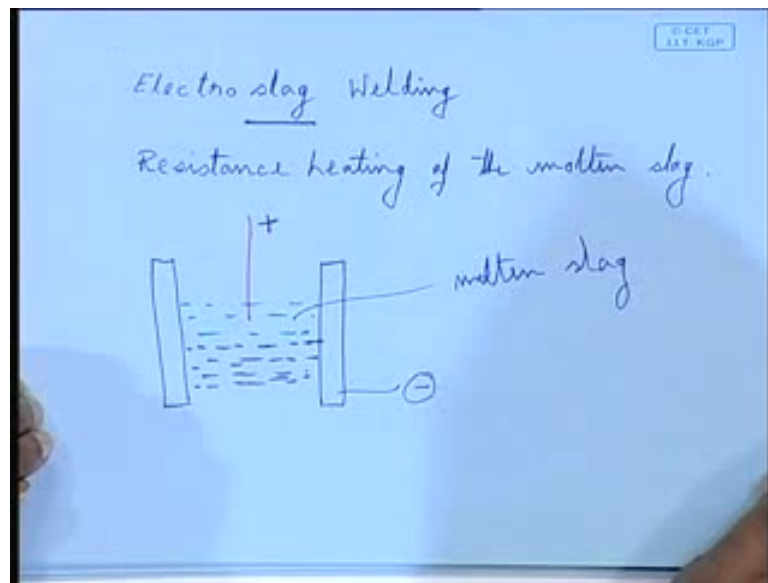 C-CET
I.I.T. KGP
Electro slag Welding
Resistance heating of the molten slag.
+
molten slag
-